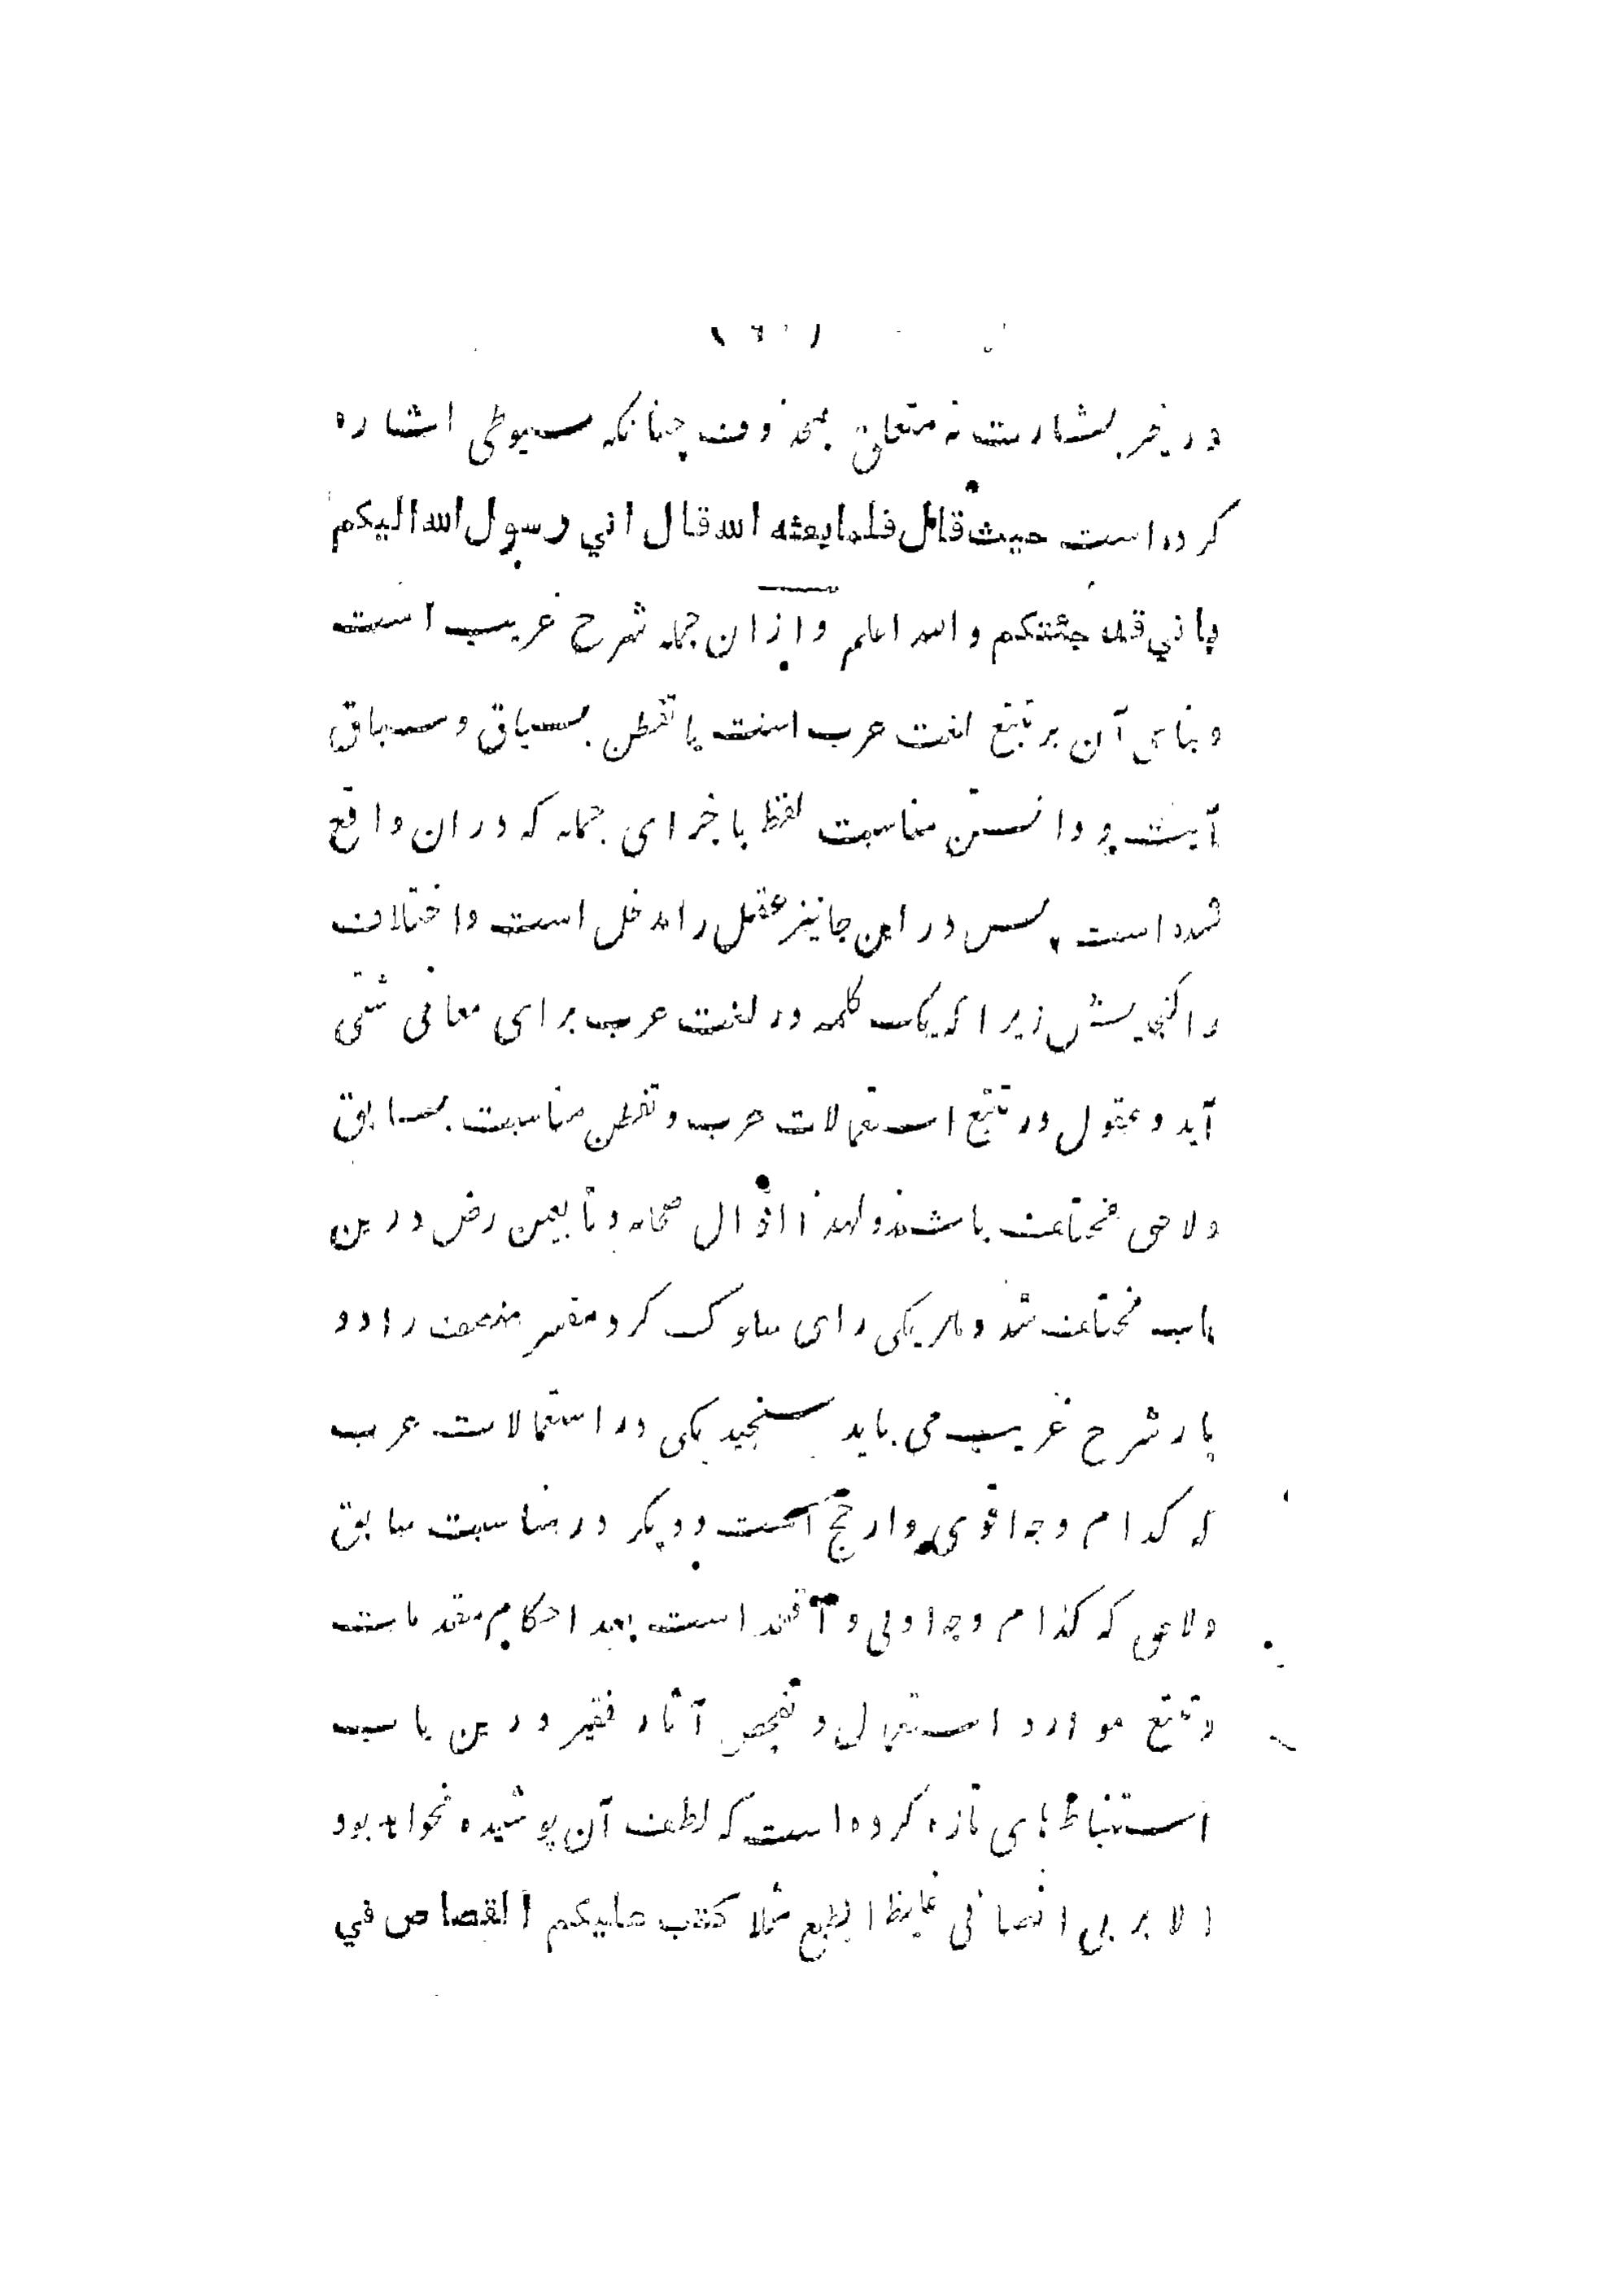 در خبر بشارت نه متعلق بمحذوف چنانکه سیوطی اشاره
کرده است حیث قال فلما بعثه الله قال اني رسول الله الیکم
باني قد جئتکم والله اعلم و ازان جمله شرح غریب است
و بنای آن بر تتبع لغت عرب است یا تفطن بسیاق و سباق
آیت و دانستن مناسبت لفظ باجزای جمله که دران واقع
شده است پس در این جا نیز عقل را مدخل است و اختلاف
را گنجایش زیرا که یک کلمه در لغت عرب برای معانی شتی
آید و عقول در تتبع استعمالات عرب و تفطن مناسبت بسابق
و لاحق مختلف باشند و لهذا اقوال صحابه و تابعین رض درین
باب مختلف شد و هر یکی رای سلوک کرد مفسر منصف را دو
بار شرح غریب می باید سنجید یکی در استعمالات عرب
که کدام وجه اقوی و ارجح است و دیگر در مناسبت سابق
و لاحق که کدام وجه اولی و اقعد است بعد احکام مقدمات
و تتبع موارد استعمال و تفحص آثار فقیر درین باب
استنباط های تازه کرده است که لطف آن پوشیده نخواهد بود
الا بر بی انصافی غلیظ الطبع مثلا کتب علیکم القصاص في